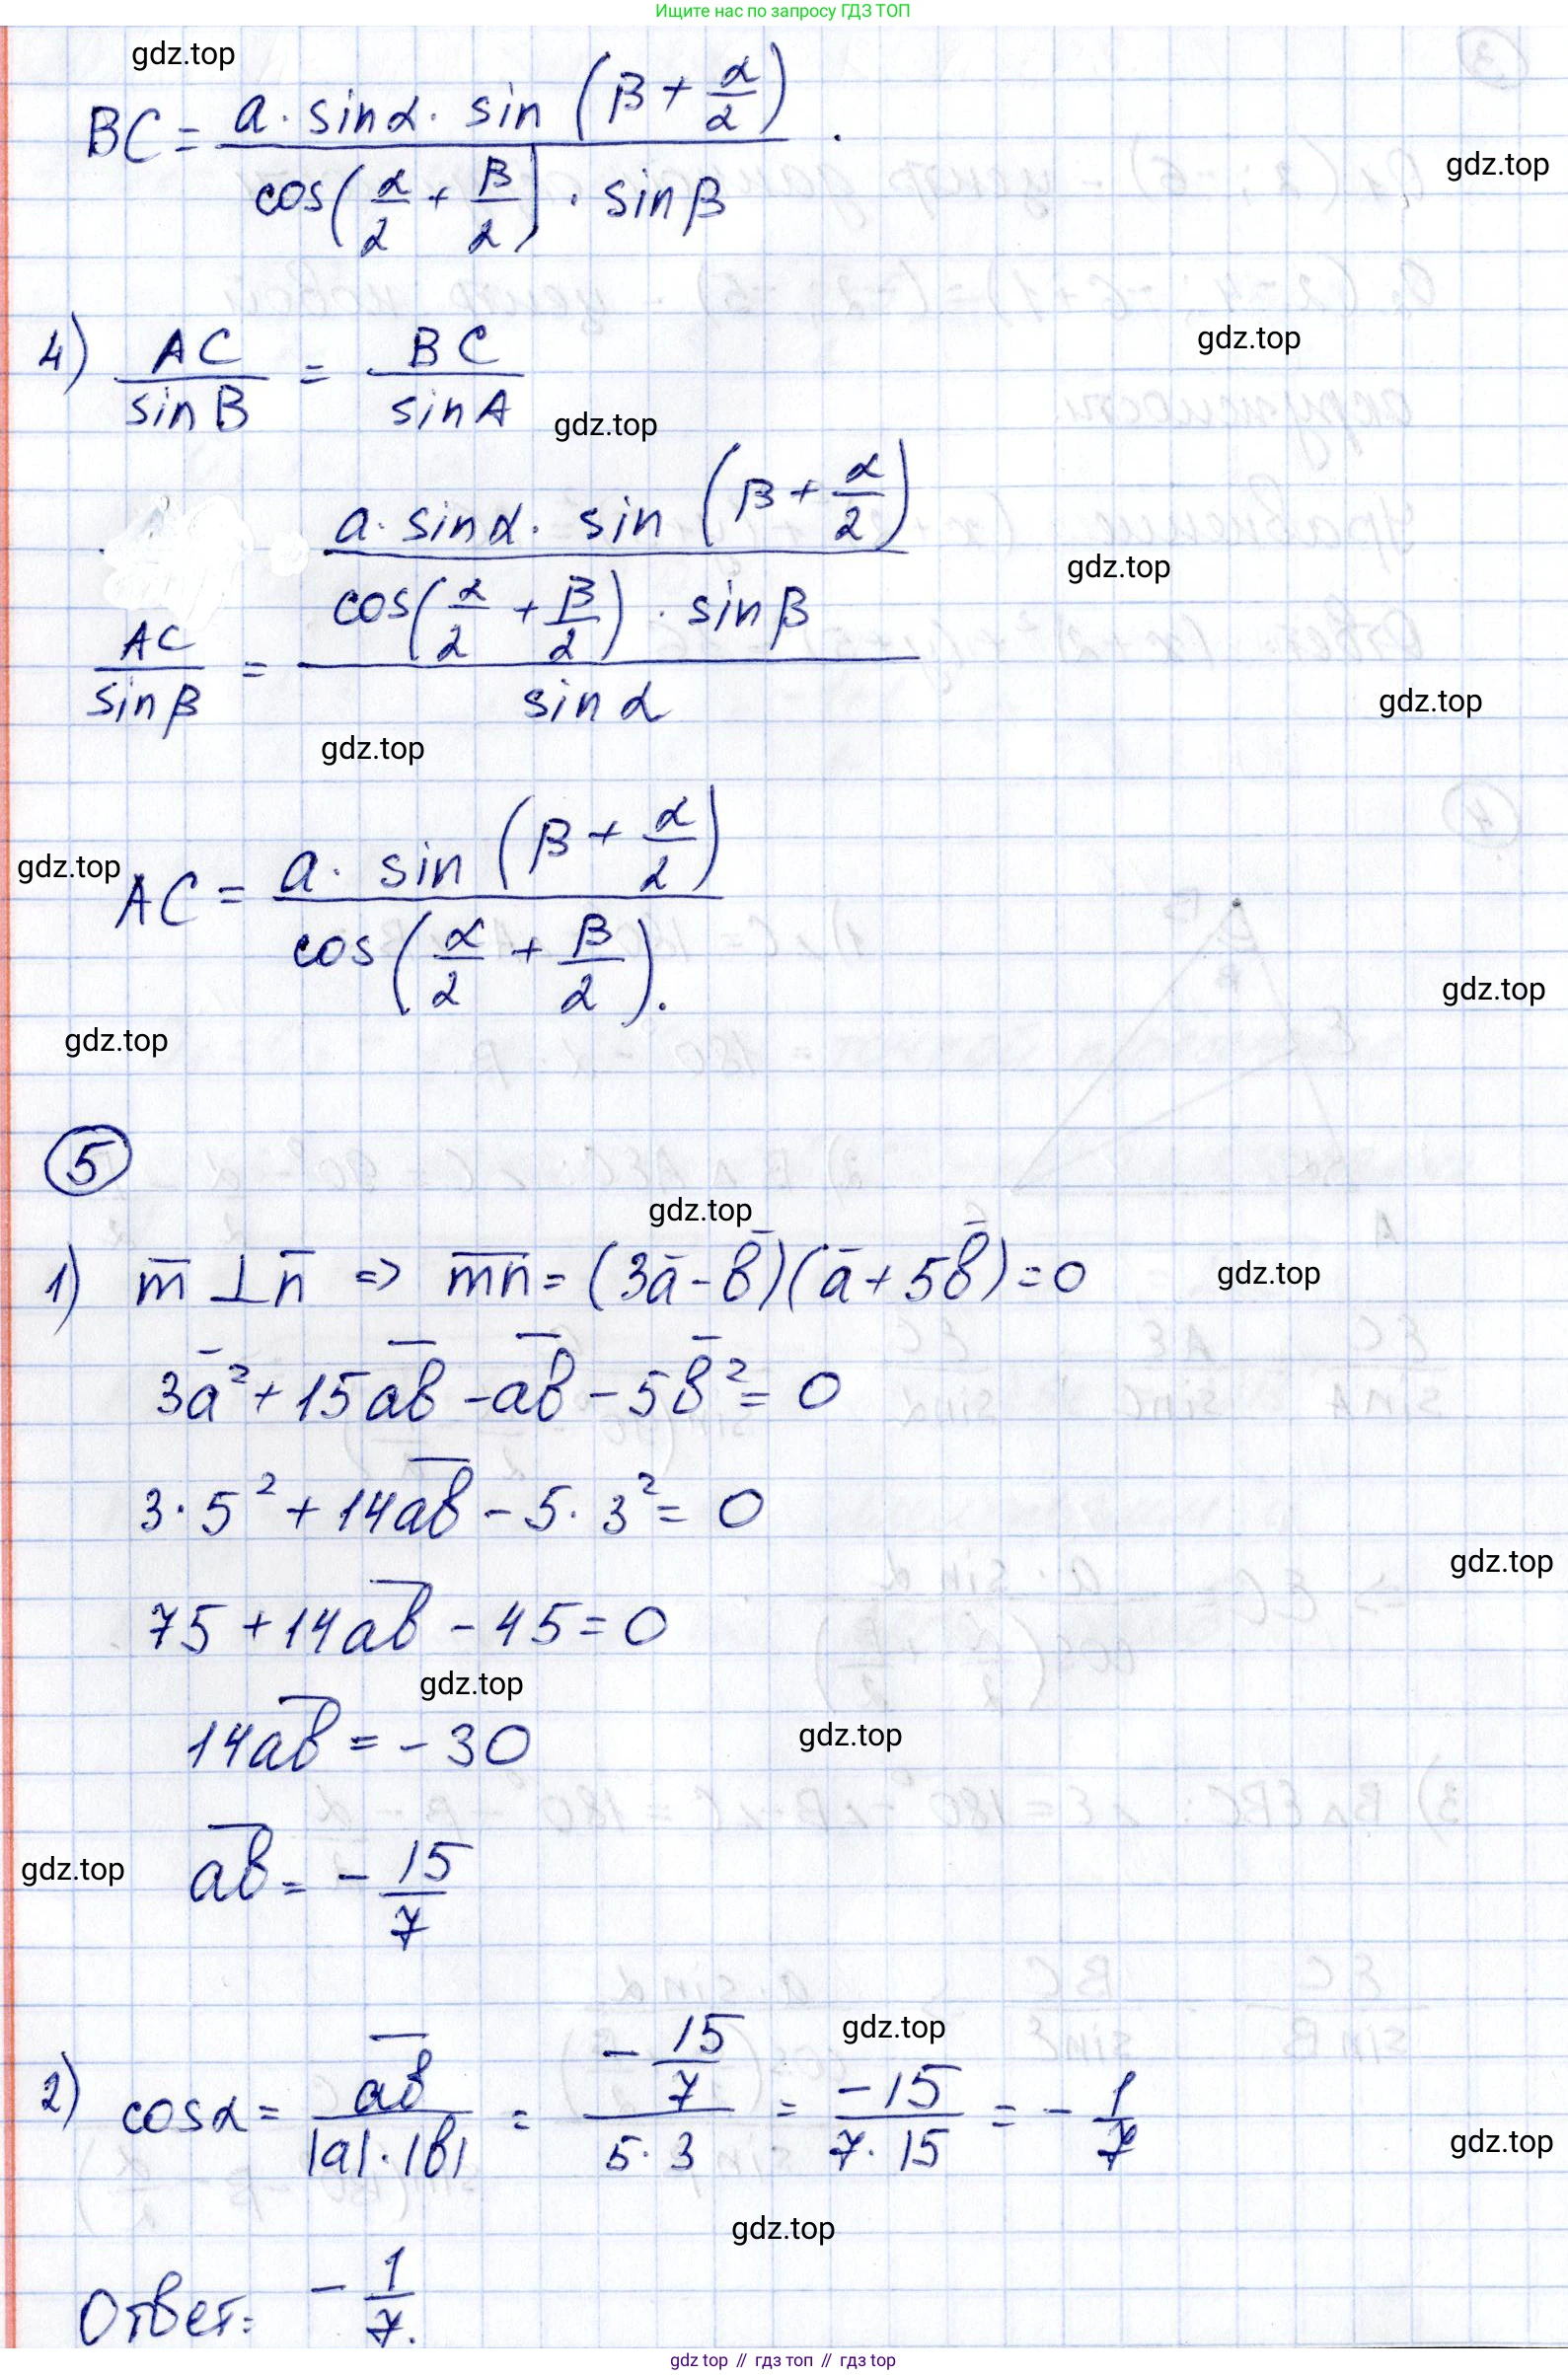 Ищите нас по запросу ГДЗ ТОП
gdz.top
BC = \frac{a \cdot \sin α \cdot \sin (β + \frac{α}{2})}{\cos(\frac{α}{2} + \frac{β}{2}) \cdot \sin β}.
gdz.top
4) \frac{AC}{\sin B} = \frac{BC}{\sin A}
gdz.top
gdz.top
\frac{AC}{\sin β} = \frac{\frac{a \cdot \sin α \cdot \sin (β + \frac{α}{2})}{\cos(\frac{α}{2} + \frac{β}{2}) \cdot \sin β}}{\sin α}
gdz.top
gdz.top
gdz.top
gdz.top
AC = \frac{a \cdot \sin (β + \frac{α}{2})}{\cos(\frac{α}{2} + \frac{β}{2})}.
gdz.top
gdz.top
5
gdz.top
1) m̅ ⊥ n̅ => \overline{mn} = (3a̅ - b̅)(a̅ + 5b̅) = 0
gdz.top
3a̅² + 15\overline{ab} - \overline{ab} - 5b̅² = 0
3 · 5² + 14\overline{ab} - 5 · 3² = 0
gdz.top
75 + 14\overline{ab} - 45 = 0
gdz.top
14\overline{ab} = - 30
gdz.top
gdz.top
\overline{ab} = - \frac{15}{7}
gdz.top
2) \cos α = \frac{\overline{ab}}{|a| · |b|} = \frac{-\frac{15}{7}}{5 · 3} = \frac{-15}{7 · 15} = - \frac{1}{7}
gdz.top
gdz.top
Ответ: - \frac{1}{7}.
gdz top // гдз топ // гдз top